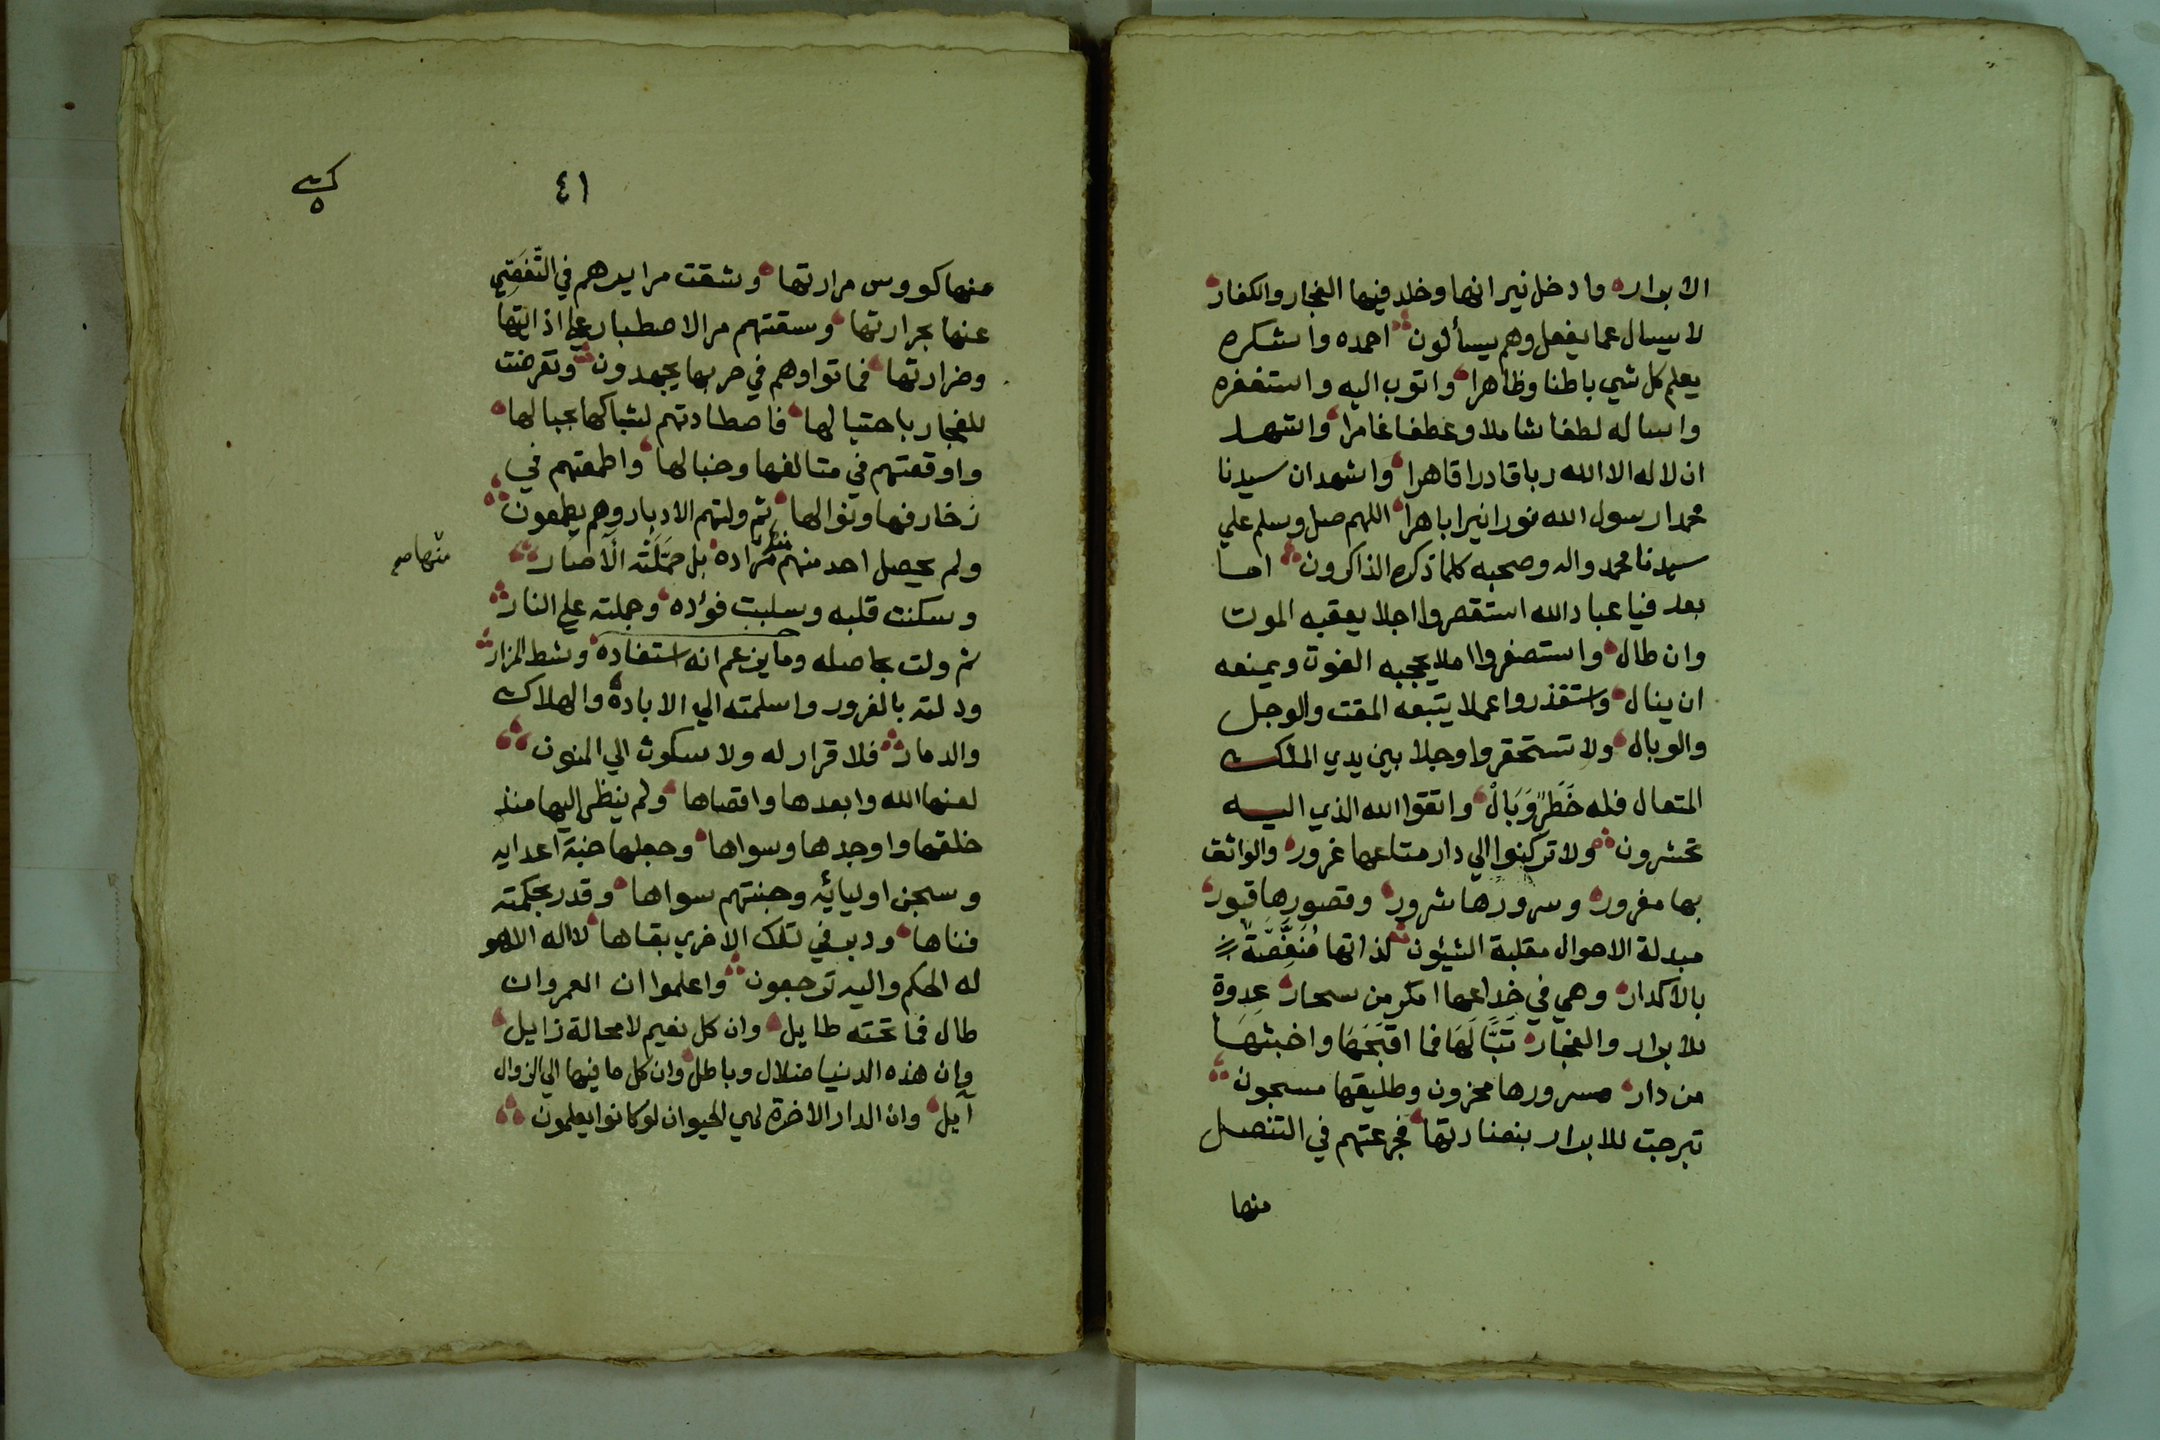 الابرار وادخل نيرانها وخلد فيها الفجار والكفار
لا يسال عما يفعل وهم يسألون احمده واشكره
يعلم كل شي باطنا وظاهرا واتوب اليه واستغفره
واساله لطفا شاملا وعطفا غامرا واشهد
ان لا اله الا الله ربا قادرا قاهرا واشهد ان سيدنا
محمدا رسول الله نورا نيرا باهرا اللهم صل وسلم علي
سيدنا محمد واله وصحبه كلما ذكره الذاكرون اما
بعد فيا عباد الله استقصروا اجلا يعقبه الموت
وان طال واستصغروا املا يحجبه الفوت ويمنعه
ان ينال واستقذروا عملا يتبعه المقت والوجل
والوبال ولا تستحقروا وجلا بين يدي الملك
المتعال فله خَطَرٌ وَبَالْ واتقوا الله الذي اليه
تحشرون ولا تركنوا الي دار متاعها غرور والواثق
بها مغرور وسرورها شرور وقصورها قبور
مبدلة الاحوال مقلبة الشئون لذاتها مُنَغَّصَّةٌ
بالاكدار وهي في خداعها امكر من سحار عدوة
للابرار والفجار تَبًّا لَهَا فما اقبَحَهَا واخبثهَا
من دار مسرورها محزون وطليقها مسجون
تبرجت للابرار بنضارتها فجرعتهم في التنصل
منها
٤١
ك
٥
منها كووس مرارتها وشقت مرايرهم في التَّفَصِّي
عنها بجرارتها وسقتهم مر الاصطبار علي اذايتها
وضرارتها فماتوا وهم في حربها يجهدون وتعرضت
للفجار باحتيالها فاصطادتهم لشباكها بحبالها
واوقعتهم في متالفها وخبالها واطمعتهم في
زخارفها ونوالها ثم ولتهم الادبار وهم يطمعون
ولم يحصل احد منهم مراده بل حَمَّلَتْه الآصار
منها صح
وسكنت قلبه وسلبت فؤده وحملته علي النار
ثم ولت بحاصله وما يزعم انه استفاده وشط المزار
ودلته بالغرور واسلمته الي الابادة والهلاك
والدمار فلا قرار له ولا سكون الي المنون
لعنها الله وابعدها واقصاها ولم ينظر اليها منذ
خلقها واوجدها وسواها وجعلها جنة اعدايه
وسجن اوليائه وجنتهم سواها وقدر بحكمته
فناها ودبر في تلك الاخري بقاها لا اله الا هو
له الحكم واليه ترجعون واعلموا ان العمر وان
طال فما تحته طايل وان كل نعيم لا محالة زايل
وان هذه الدنيا ضلال وباطل وان كل ما فيها الي الزوال
آيل وان الدار الاخرة لهي الحيوان لو كانوا يعلمون